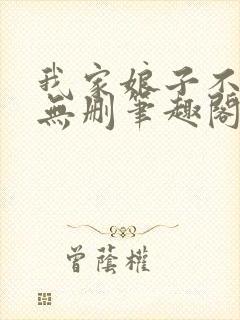 我家娘子不
無刪筆趣閣
曾蔭權